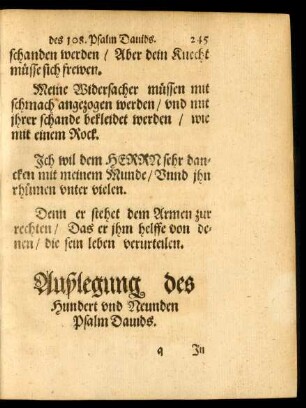 des 108. Psalm Dauids. 245
schanden werden / Aber dein Knecht
müsse sich frewen.
Meine Widersacher müssen mit
schmach angezogen werden / vnd mit
jhrer schande bekleidet werden / wie
mit einem Rock.
Ich wil dem HERRN sehr dan-
cken mit meinem Munde / Vnnd jhn
rhümen vnter vielen.
Denn er stehet dem Armen zur
rechten / Das er jhm helffe von de-
nen / die sein leben verurteilen.
Außlegung des
Hundert vnd Neunden
Psalm Dauids.
q In